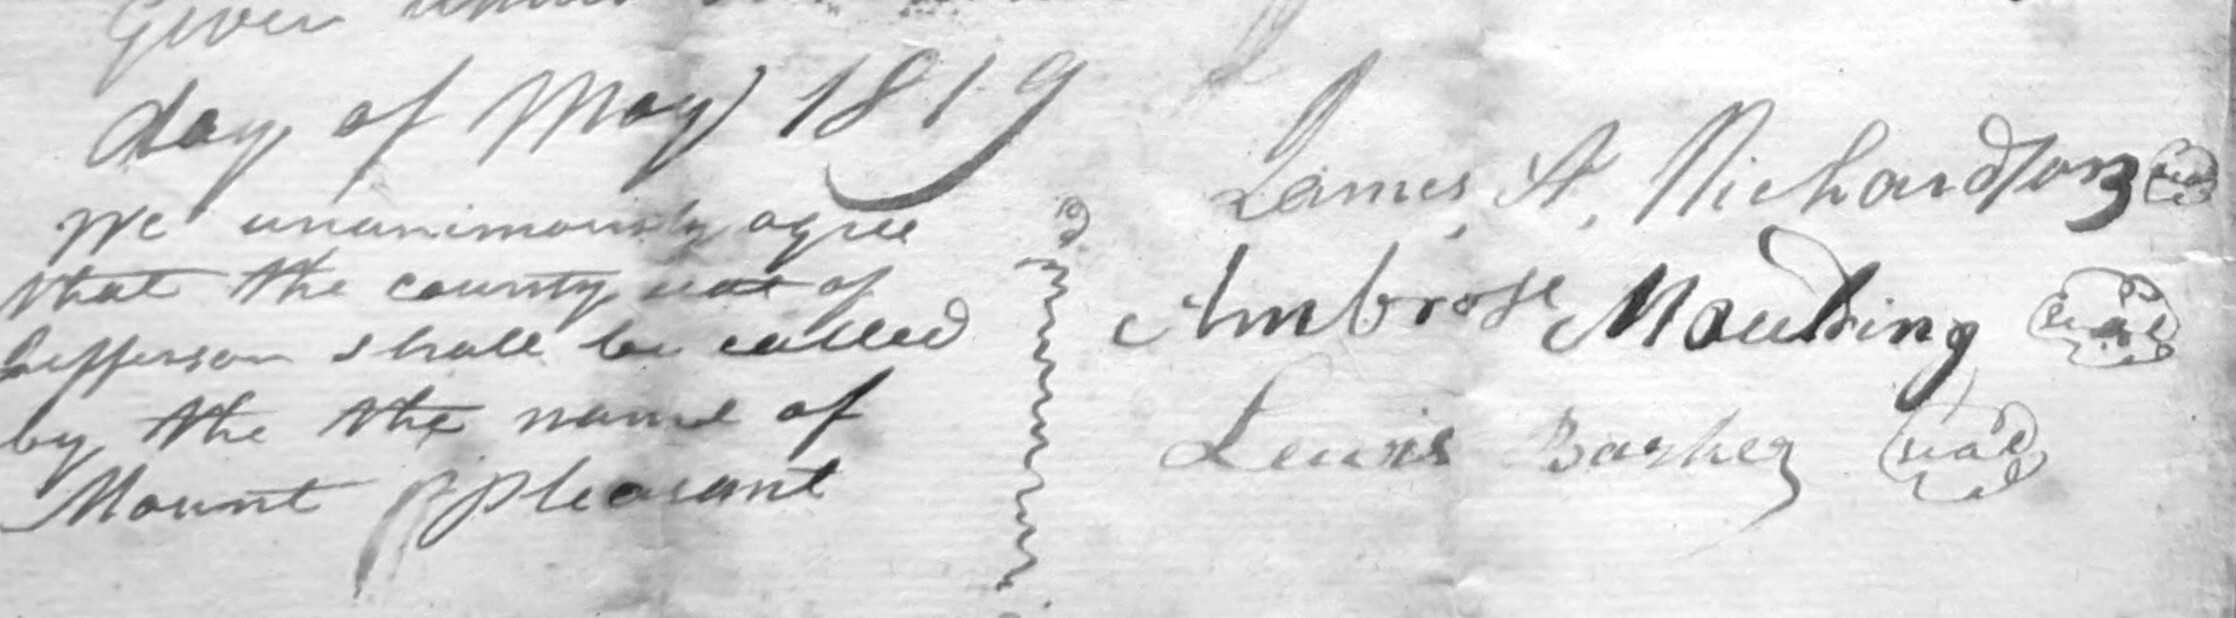 Given under
day of May 1819
We unanimously agree
that the county seat of
Jefferson shall be called
by the the name of
Mount Pleasant
James A. Richardson seal
Ambrose Maulding seal
Lewis Barker seal